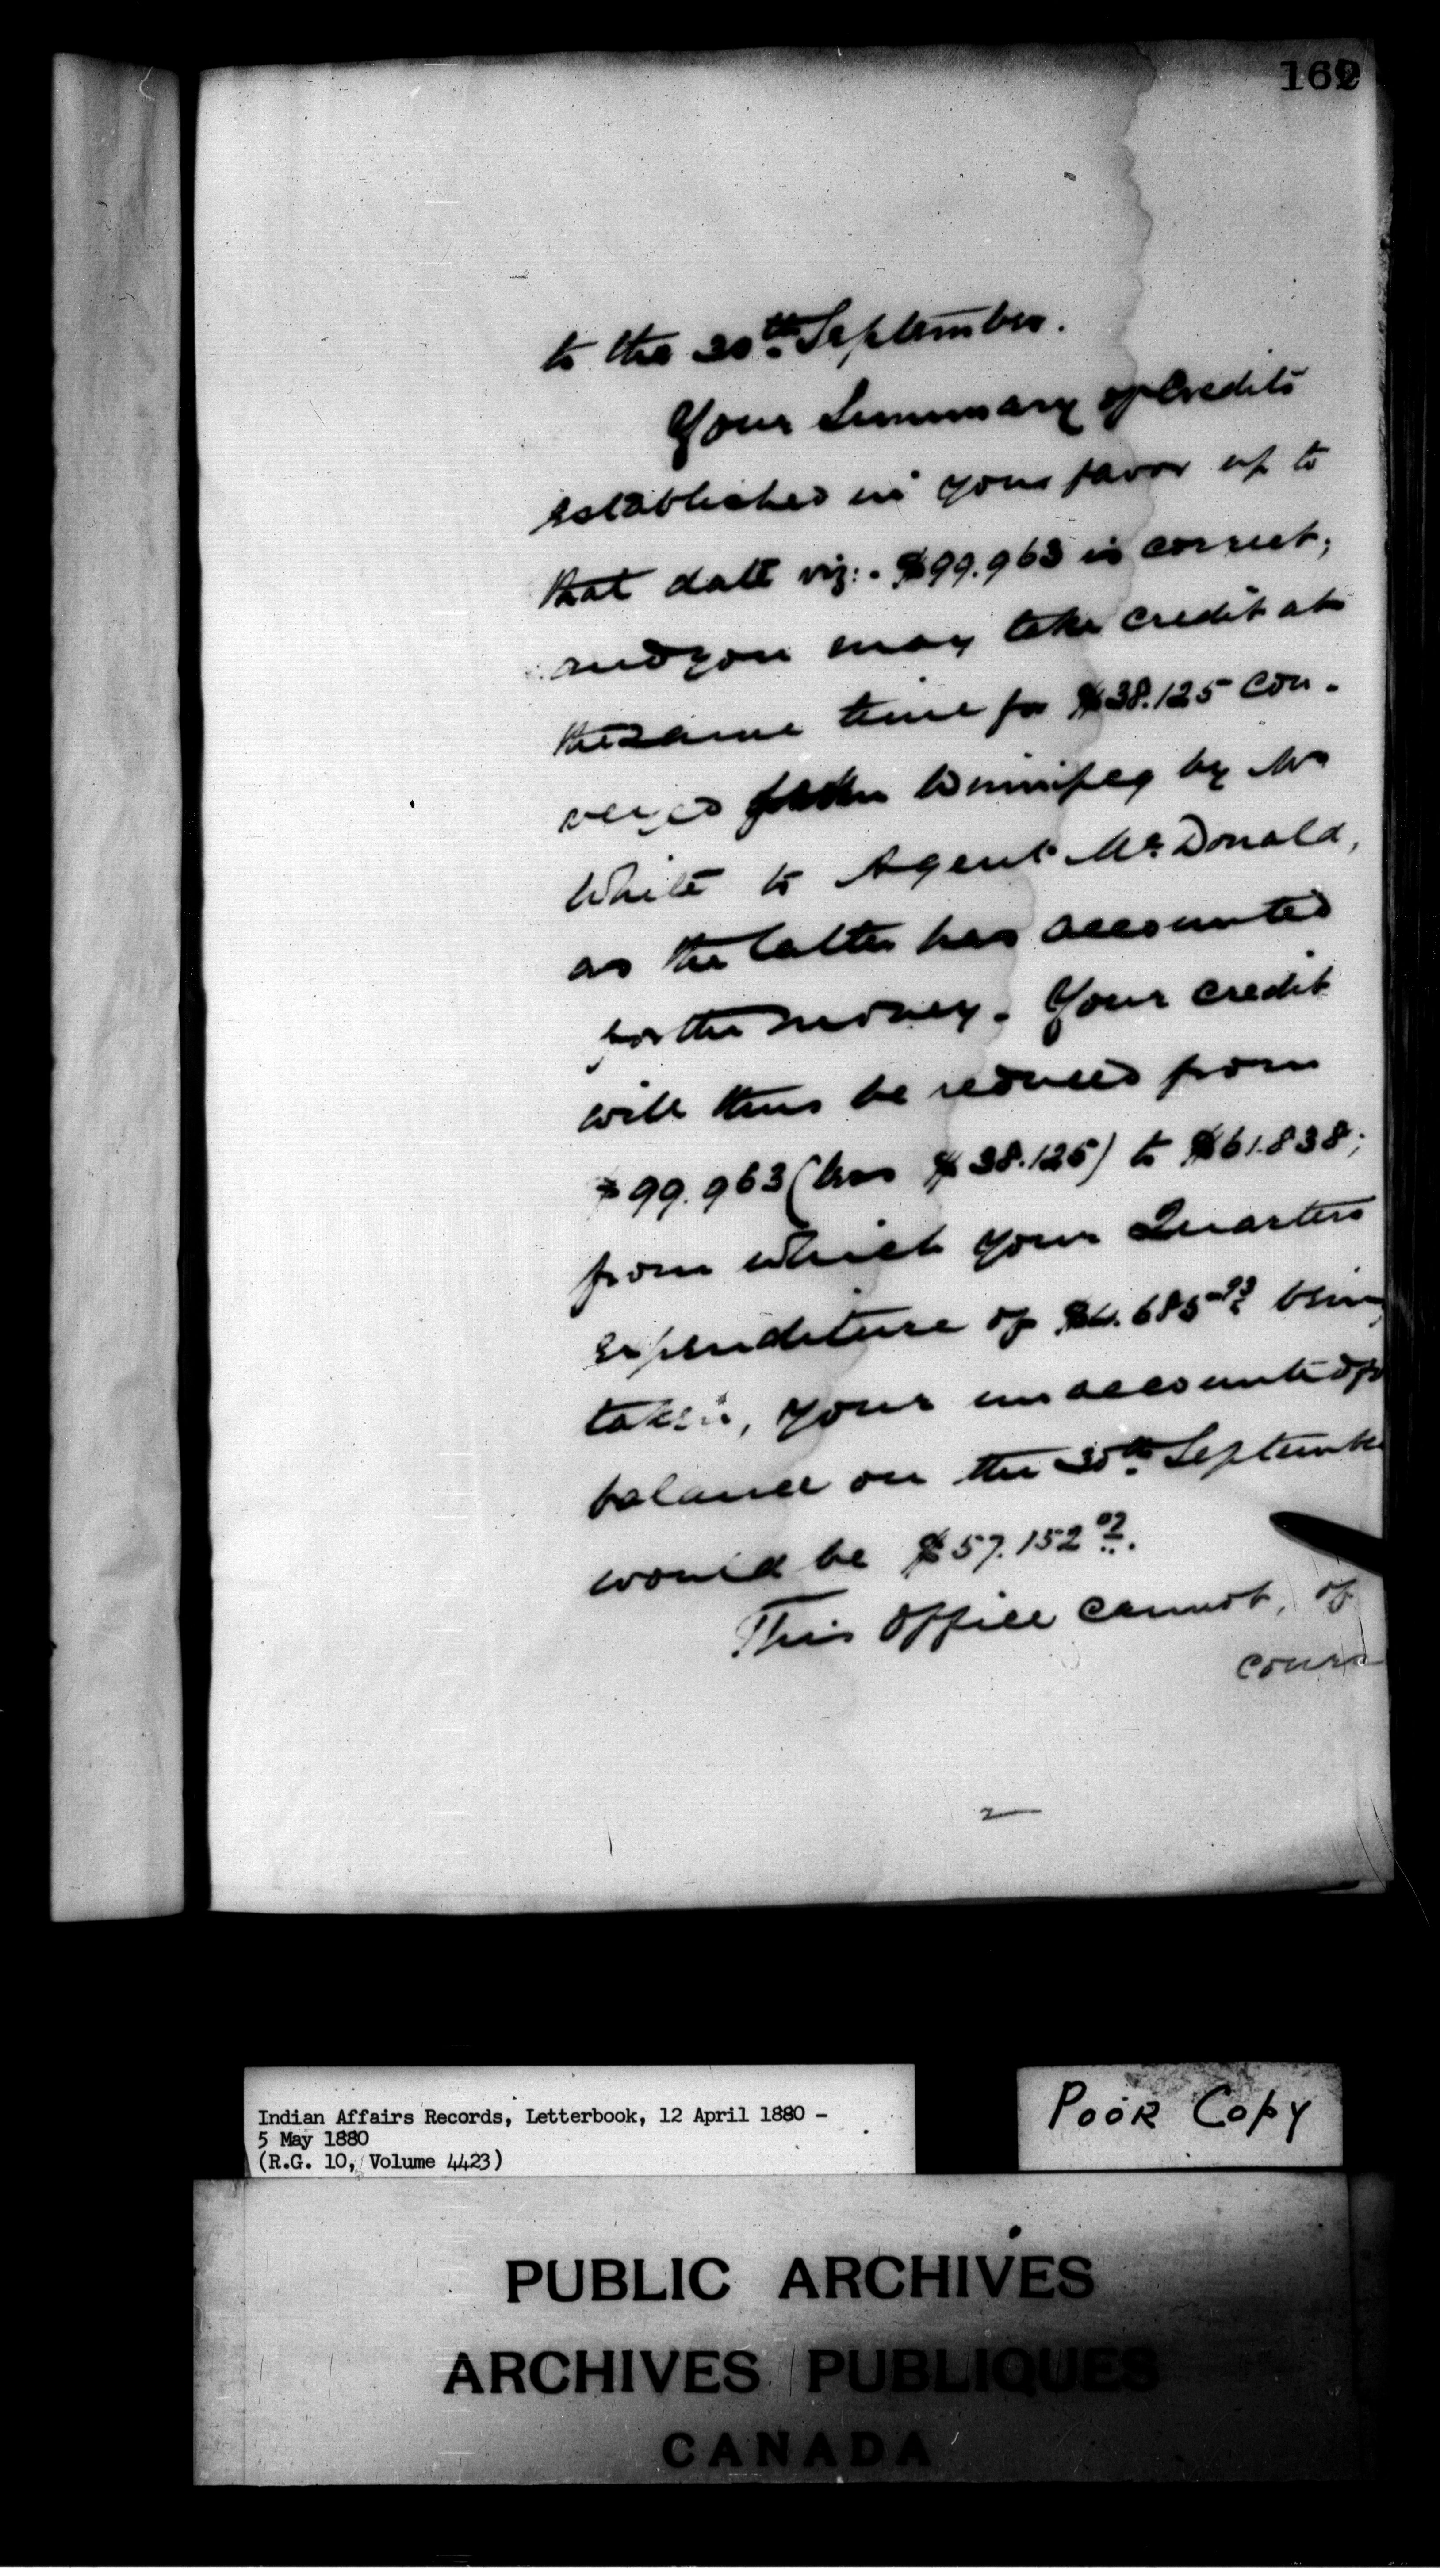 162
to the 30th September.
Your Summary of Credits
established in your favor up to
that date viz:- $99.963 is correct;
and you may take credit at
the same time for $38.125 con-
veyed from Winnipeg by Mr
White to Agent McDonald,
as the latter has accounted
for the money. Your credit
will thus be reduced from
$99.963 (less $38.125) to $61.838;
from which your Quarters
expenditure of $4.685 93 being
taken, your unaccounted for
balance on the 30th September
would be $57.152 07.
This Office cannot, of
course
2
Indian Affairs Records, Letterbook, 12 April 1880 -
5 May 1880
(R.G. 10, Volume 4423)
Poor Copy
PUBLIC ARCHIVES
ARCHIVES PUBLIQUES
CANADA